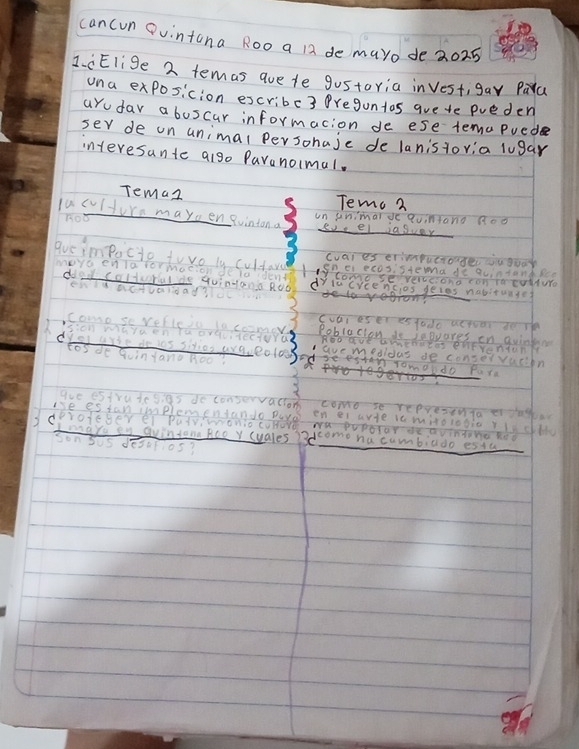 Cancun Quintana Roo a 12 de mayo de 2025
1-¿Elige 2 temas que te gustaria investigar Para
una exposicion escribe 3 Preguntas que te pueden
ayudar a buscar informacion de ese tema puede
ser de un animal Personaje de la historia lugar
interesante algo Paranormal.
Tema 1
la cultura maya en Quintana
Roo
que impacto tuvo la cultura
maya en la formacion de la
dad cultural de quintana Roo
en la actualidad?
2¿Como se refleja la cosmov
sion maya en la arquitectura
y el arte de los sitios arqueolo
cos de Quintana Roo?
que estrategias de conservacion
se estan implementando para
3 proteger el Patrimonio cultural
maya en quintana Roo y cuales
son sus desafios?
Tema 2
un animal de quintana Roo
es el jaguar
cual es el impacto del jaguar
1¿ en el ecosistema de quintana Roo
y como se relaciona con la cultura
y la creencias de los habitantes
de la region?
cual es el estado actual de la
Poblacion de jaguares en quintana
Roo que amenazas enfrentan y
que medidas de conservacion
2¿ se estan tomando Para
Protegerlos?
como se representa el jaguar
en el arte la mitologia y la cultu
ra Popular de quintana Roo
3¿como ha cambiado esta